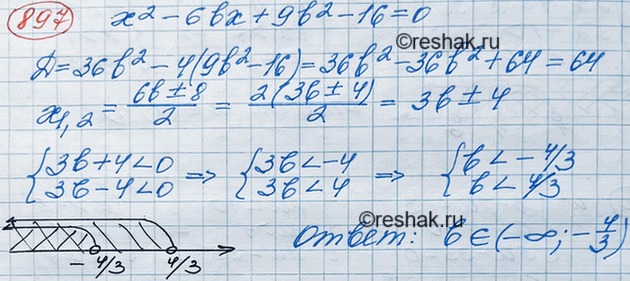 897 x² - 6bx + 9b² - 16 = 0
©reshak.ru
D = 36b² - 4(9b² - 16) = 36b² - 36b² + 64 = 64
x₁,₂ = (6b ± 8)/2 = 2(3b ± 4)/2 = 3b ± 4
{3b + 4 < 0 ⇒ {3b < -4 ⇒ {b < -4/3
3b - 4 < 0 3b < 4 b < 4/3
©reshak.ru
-4/3 4/3 Ответ: b ∈ (-∞; -4/3)